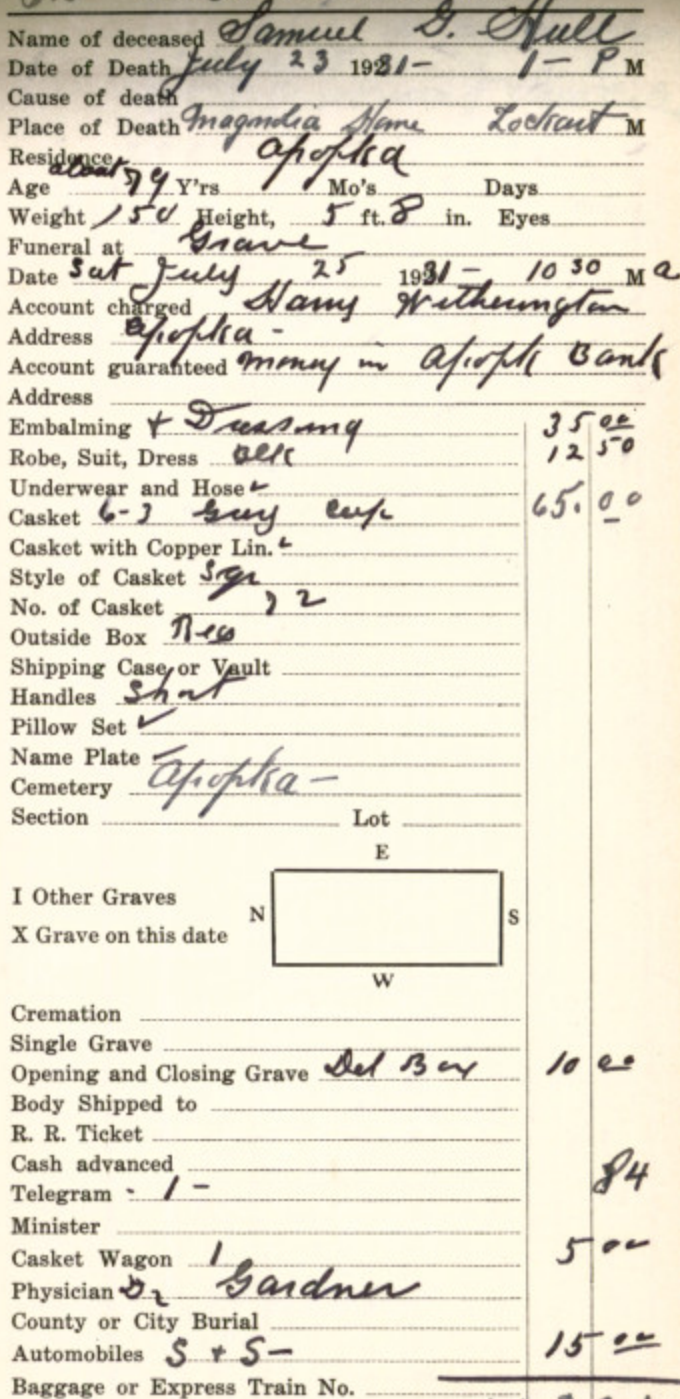 Name of deceased Samuel G. Hull
Date of Death July 23 1931- 1- P M
Cause of death
Place of Death Magnolia Home Lockart M
Residence Apopka
Age about 79 Y'rs Mo's Days
Weight 150 Height, 5 ft. 8 in. Eyes
Funeral at Grave
Date Sat July 25 1931- 10 30 M a
Account charged Harry Witherington
Address Apopka -
Account guaranteed money in Apopk Bank
Address
Embalming + Dressing 35 00
Robe, Suit, Dress 12 50
Underwear and Hose ✓
Casket 6-3 Grey 65. 00
Casket with Copper Lin. ✓
Style of Casket Sqr
No. of Casket 72
Outside Box
Shipping Case or Vault
Handles Short
Pillow Set ✓
Name Plate
Cemetery Apopka -
Section Lot
E
I Other Graves
N S
X Grave on this date
W
Cremation
Single Grave
Opening and Closing Grave Del Box 10 00
Body Shipped to
R. R. Ticket
Cash advanced
Telegram - 1 - 84
Minister
Casket Wagon 1 5 00
Physician Dr Gardner
County or City Burial
Automobiles S + S- 15 00
Baggage or Express Train No.